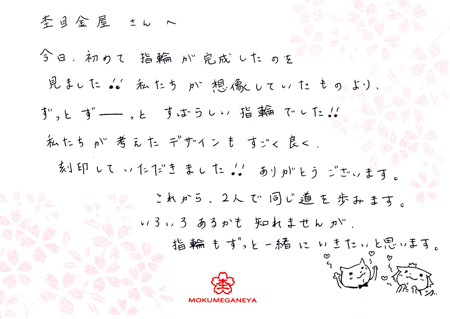 杢目金屋 さんへ
今日、初めて 指輪が完成したのを
見ました!! 私たちが想像していたものより、
ずっと ずーーっと すばらしい指輪でした!!
私たちが考えたデザインもすごく良く、
刻印していただきました!! ありがとうございます。
これから、2人で同じ道を歩みます。
いろいろあるかも知れませんが、
指輪もずっと一緒にいきたいと思います。
MOKUMEGANEYA